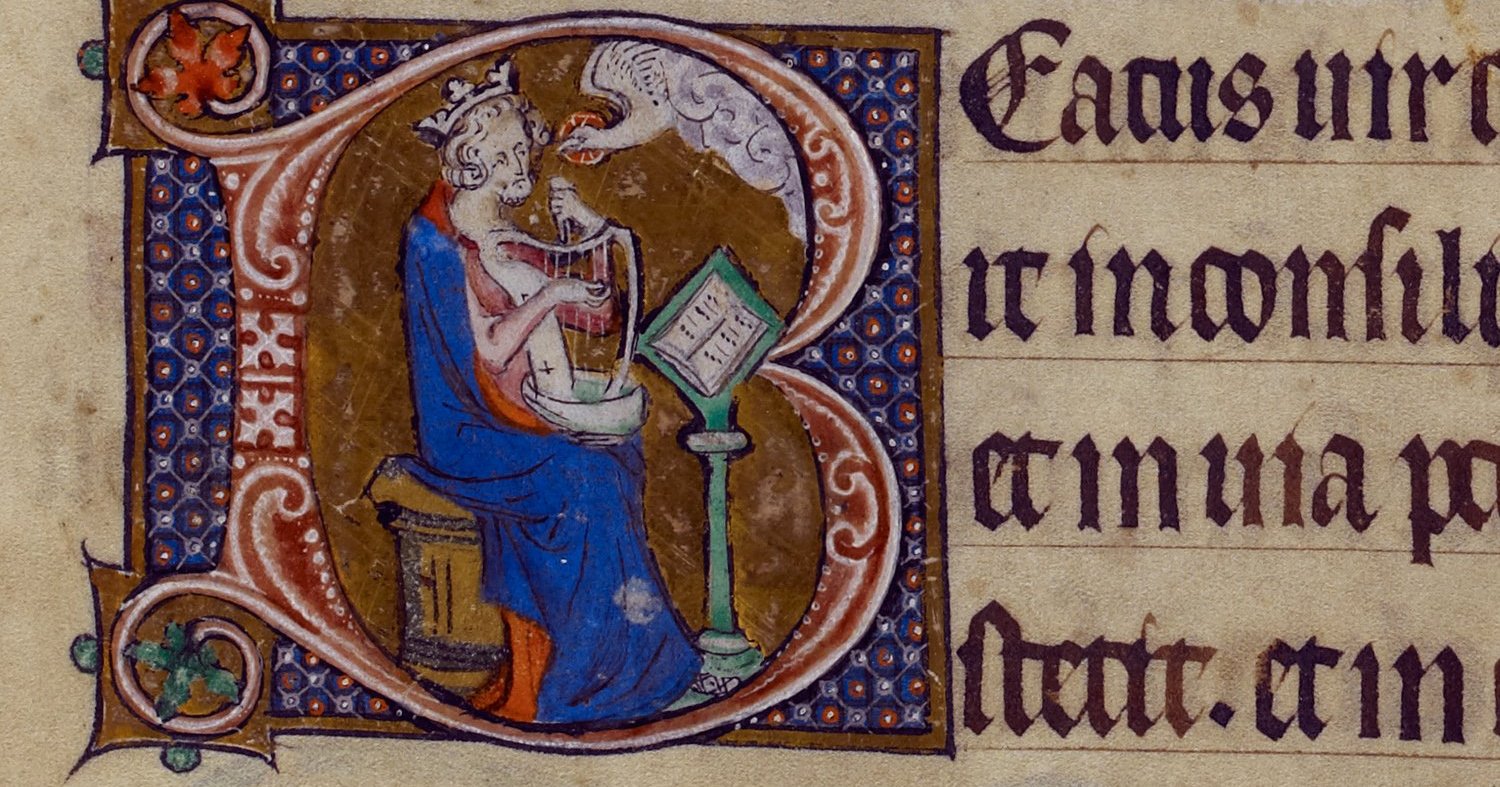 BEatus uir
it in consili
et in uia
stetit. et in